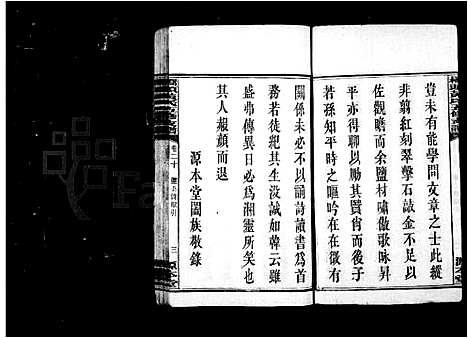 豈未有能學問文章之士此縱
非翦紅刻翠擊石敲金不足以
佐觀亦余鹽村嘯傲歌詠昇
平亦聊以勵其賢肖而後於
若孫知平時之謳吟在在微有
關係未必不以誦詩讀書爲首
務若徒耙其生没誠如韓云雖
盛弗傳異日必爲湘靈所笑也
其人赧顏而退
源本堂闔族敬錄
卷二十
三
源本堂